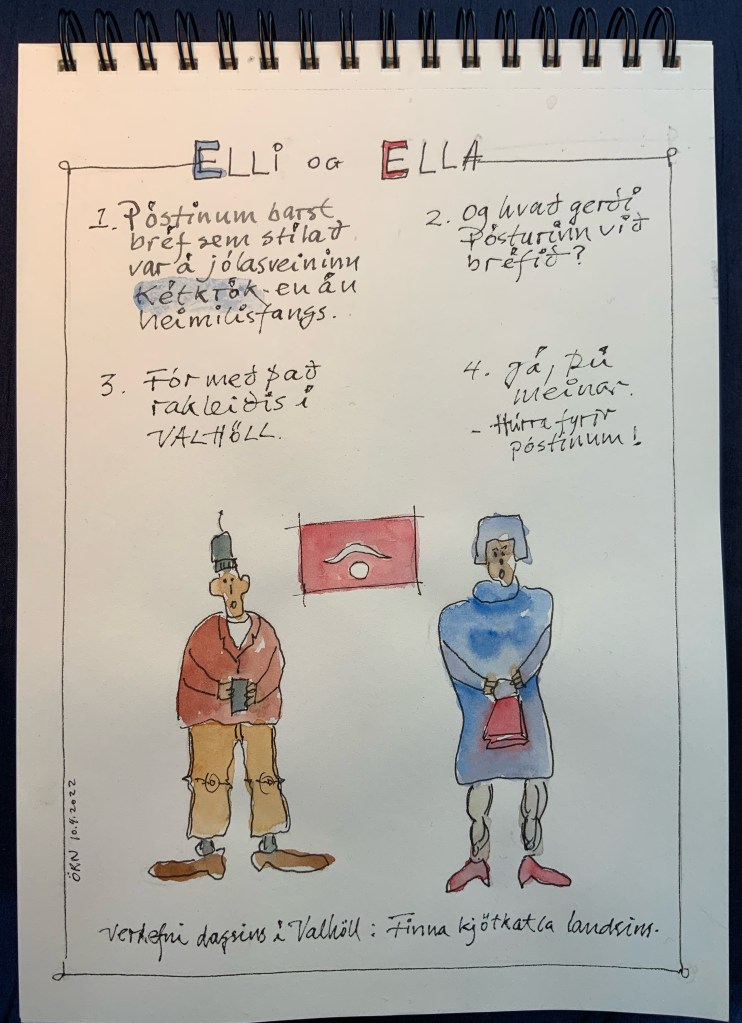 ELLI OG ELLA
1. Póstinum barst
bréf sem stílað
var á jólasveininn
Kétkrók - en án
heimilisfangs.
2. Og hvað gerði
Pósturinn við
bréfið?
3. Fór með það
rakleiðis í
VALHÖLL.
4. Já, þú
meinar.
- Húrra fyrir
póstinum!
ÖRN 10.4.2022
Verkefni dagsins í Valhöll: Finna kjötkatla landsins.